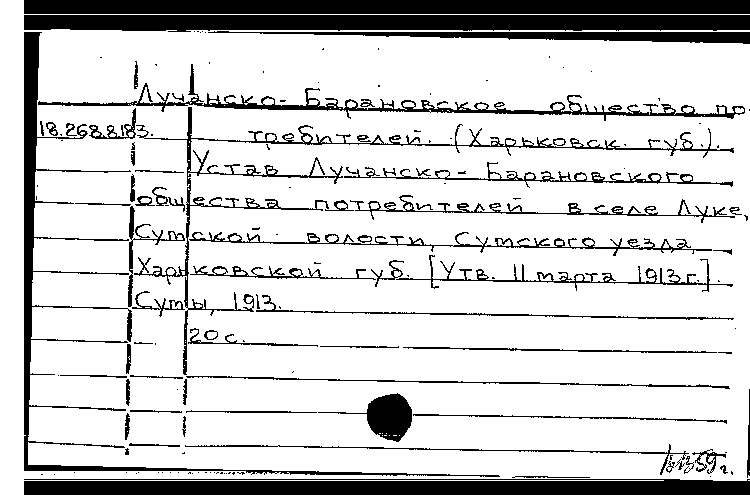 Лучанско-Барановское общество по-
18.268.8.183. требителей. (Харьковск. губ.).
Устав Лучанско-Барановского
общества потребителей в селе Луке,
Сумской волости, Сумского уезда,
Харьковской губ. [Утв. 11 марта 1913 г.].
Сумы, 1913.
20 с.